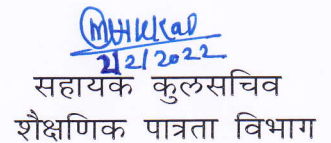 2/2/2022
सहायक कुलसचिव
शैक्षणिक पात्रता विभाग